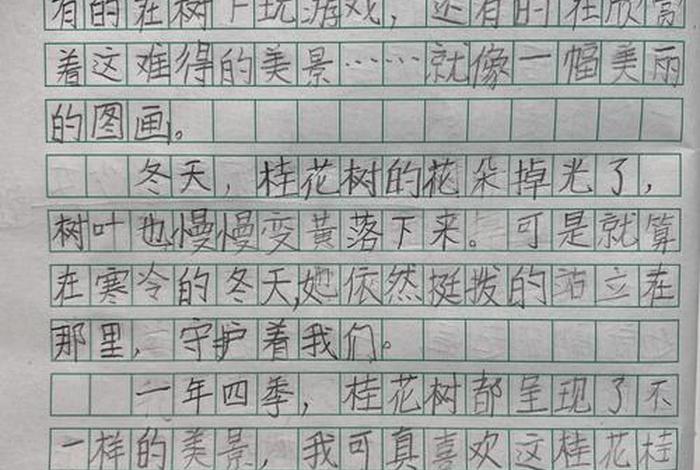 有的在树下玩游戏，还有的在欣赏
着这难得的美景……就像一幅美丽
的图画。
冬天，桂花树的花朵掉光了，
树叶也慢慢变黄落下来。可是就算
在寒冷的冬天,她依然挺拨的站立在
那里，守护着我们。
一年四季，桂花树都呈现了不
一样的美景，我可真喜欢这桂花桂